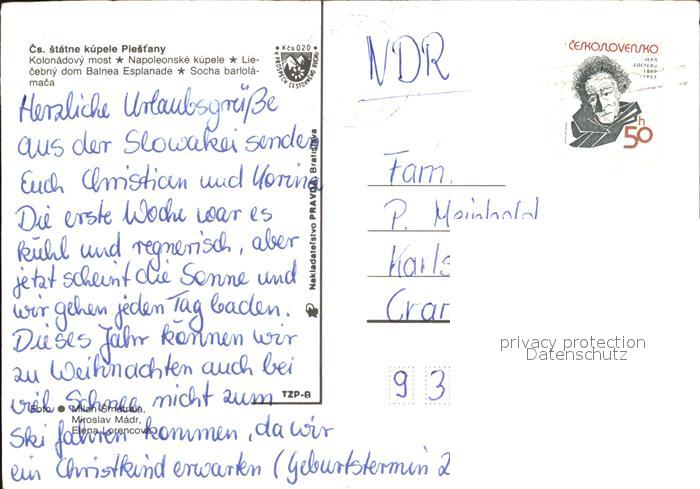 Čs. štátne kúpele Piešťany
Kolonádový most ★ Napoleonské kúpele ★ Lie-
čebný dom Balnea Esplanade ★ Socha barlolá-
mača
Kčs 020
V PROSPECH CESTOVNÉHO RUCHU
Herzliche Urlaubsgrüße
aus der Slowakei senden
Euch Christian und Korina
Die erste Woche war es
kühl und regnerisch, aber
jetzt scheint die Sonne und
wir gehen jeden Tag baden.
Dieses Jahr können wir
zu Weihnachten auch bei
viel Schnee nicht zum
Ski fahren kommen, da wir
ein Christkind erwarten (Geburtstermin 2
Foto ● Milan Smatana,
Miroslav Mádr,
Elena Lorencová
Nakladateľstvo PRAVDA Bratislava
TZP-B
NDR
ČESKOSLOVENSKO
JEAN
COCTEAU
1889
1963
50h
Fam.
P. Meinhold
Karls
Cran
93
privacy protection
Datenschutz